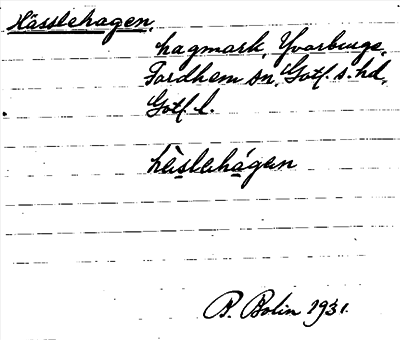 Hässlehagen,
hagmark, Yvarbings,
Fardhem sn, Gotl. s. hd,
Gotl. l.
hässlehagen
B. Bolin 1931.